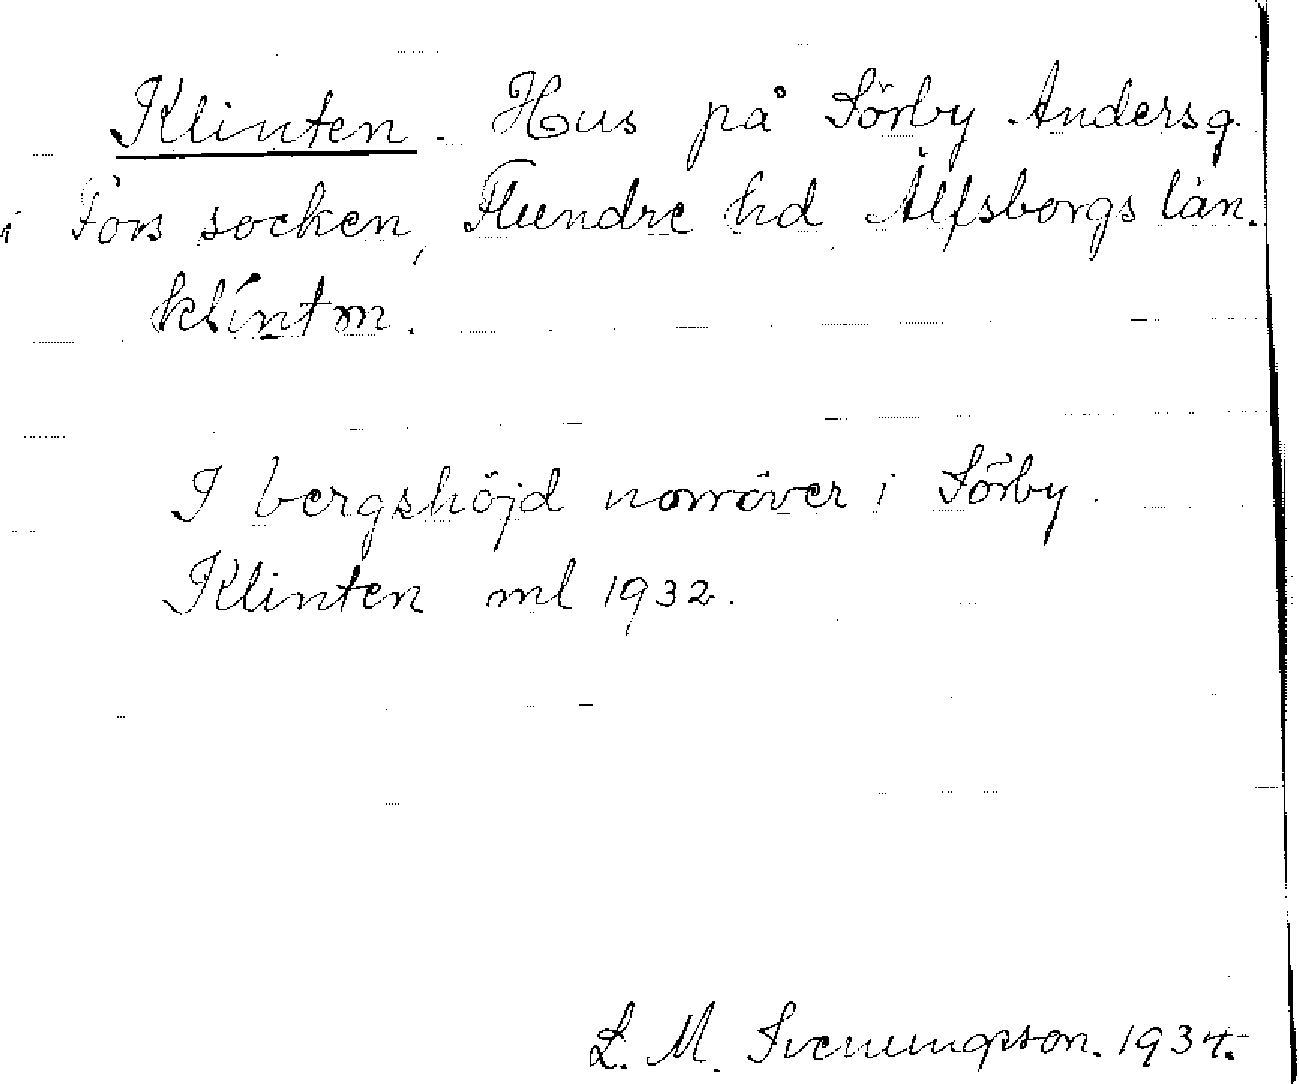 Klinten. Hus på Sörby Andersg.
i Fors socken, Flundre hd, Älfsborgs län.
klíntɷn.
I bergshöjd norröver i Sörby.
Klinten ml 1932.
L. M. Svenungsson. 1934.